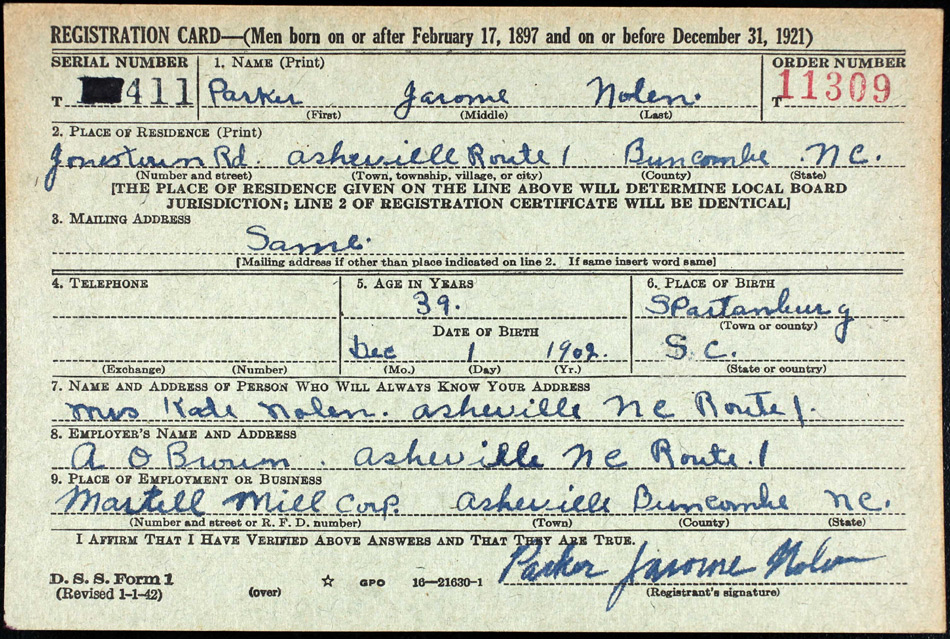 REGISTRATION CARD—(Men born on or after February 17, 1897 and on or before December 31, 1921)
SERIAL NUMBER 1. NAME (Print) ORDER NUMBER
T 411 Parker Jarome Nolen. T 11309
(First) (Middle) (Last)
2. PLACE OF RESIDENCE (Print)
Jonestown Rd. asheville Route 1 Buncombe . NC.
(Number and street) (Town, township, village, or city) (County) (State)
[THE PLACE OF RESIDENCE GIVEN ON THE LINE ABOVE WILL DETERMINE LOCAL BOARD
JURISDICTION; LINE 2 OF REGISTRATION CERTIFICATE WILL BE IDENTICAL]
3. MAILING ADDRESS
Same.
[Mailing address if other than place indicated on line 2. If same insert word same]
4. TELEPHONE 5. AGE IN YEARS 6. PLACE OF BIRTH
39. SPartanburg
DATE OF BIRTH (Town or county)
Dec 1 1902. S.C.
(Exchange) (Number) (Mo.) (Day) (Yr.) (State or country)
7. NAME AND ADDRESS OF PERSON WHO WILL ALWAYS KNOW YOUR ADDRESS
Mrs Kate Nolen. asheville NC Route 1.
8. EMPLOYER'S NAME AND ADDRESS
A O Brown . asheville NC Route. 1
9. PLACE OF EMPLOYMENT OR BUSINESS
Martell Mill Corp. asheville Buncombe NC.
(Number and street or R. F. D. number) (Town) (County) (State)
I AFFIRM THAT I HAVE VERIFIED ABOVE ANSWERS AND THAT THEY ARE TRUE.
Parker Jarome Nolen
D. S. S. Form 1
(Revised 1-1-42) (over) ☆ GPO 16—21630-1 (Registrant's signature)